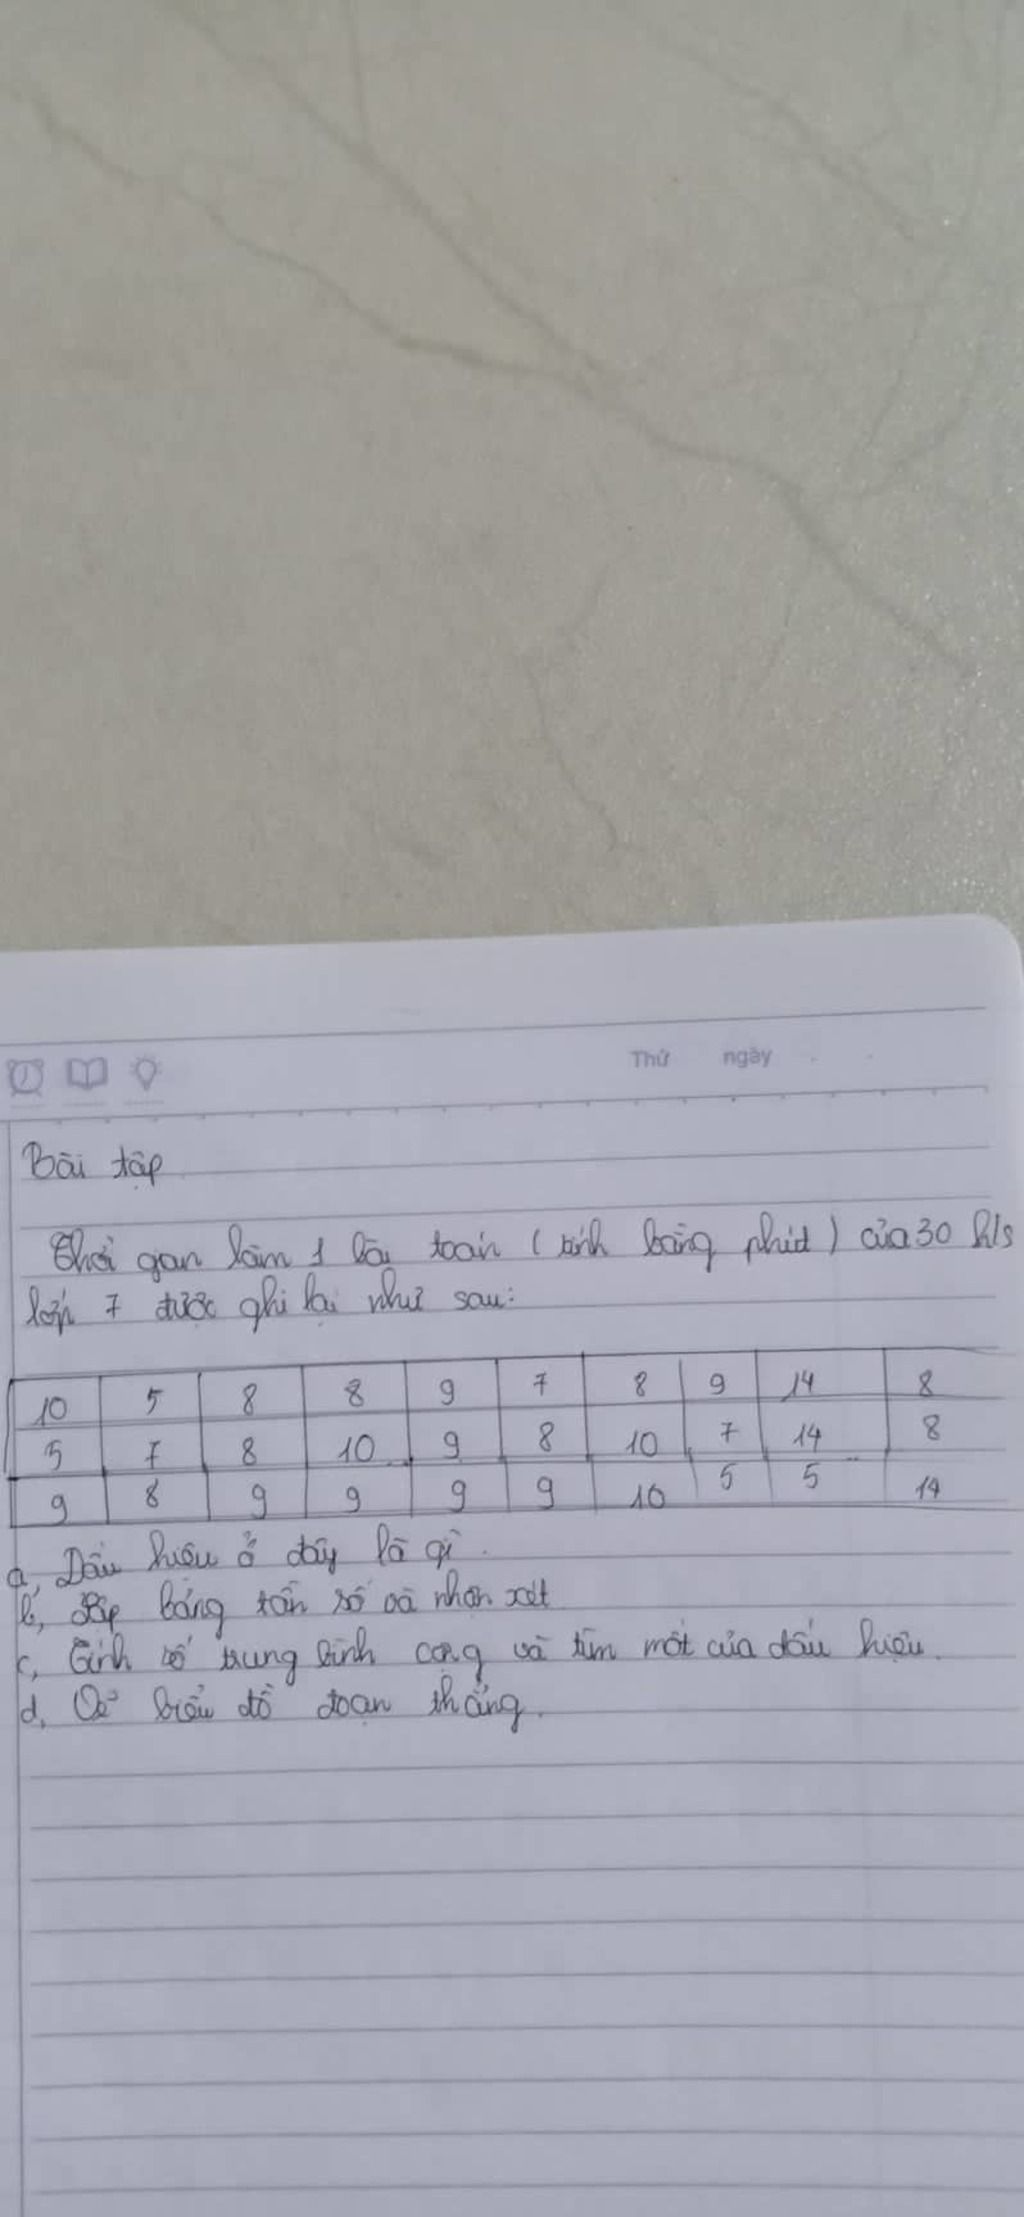 Thứ ngày
Bài tập
Thời gian làm 1 bài toán (tính bằng phút) của 30 h/s
lớp 7 được ghi lại như sau:
10 5 8 8 9 7 8 9 14 8
5 7 8 10 9 8 10 7 14 8
9 8 9 9 9 9 10 5 5 14
a, Dấu hiệu ở đây là gì.
b, Lập bảng tần số và nhận xét
c, Tính số trung bình cộng và tìm mốt của dấu hiệu.
d, Vẽ biểu đồ đoạn thẳng.